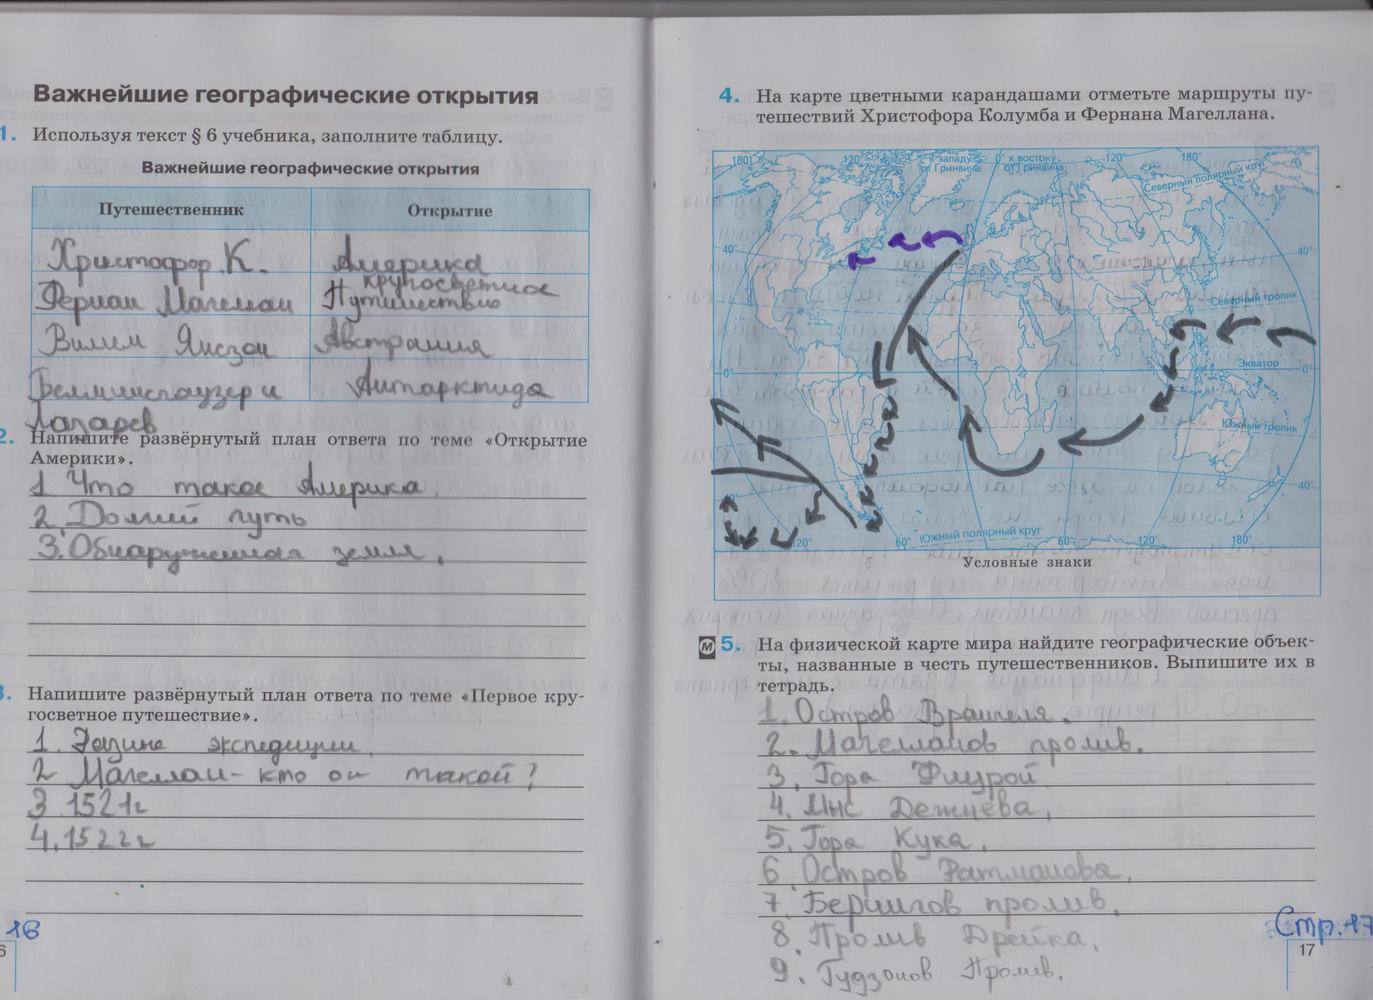 Важнейшие географические открытия
1. Используя текст § 6 учебника, заполните таблицу.
Важнейшие географические открытия
Путешественник Открытие
Христофор К. Америка
Фернан Магеллан кругосветное Путишествию
Вилим Янсзон Австралия
Беллинсгаузер и Антарктида
Лазарев
2. Напишите развёрнутый план ответа по теме «Открытие
Америки».
1 Что такое Америка.
2. Долгий путь
3. Обнаруженная земля.
3. Напишите развёрнутый план ответа по теме «Первое кру-
госветное путешествие».
1. Задина экспедиции.
2 Магеллан - кто он такой?
3 1521г
4. 1522г
16
6
4. На карте цветными карандашами отметьте маршруты пу-
тешествий Христофора Колумба и Фернана Магеллана.
180° 120° к западу от Гринвича 0° к востоку от Гринвича 120° 180°
Северный полярный круг
40° 40°
Северный тропик
0° Экватор 0°
Южный тропик
40° 40°
120° 60° Южный полярный круг 60° 120° 180°
Условные знаки
М 5. На физической карте мира найдите географические объек-
ты, названные в честь путешественников. Выпишите их в
тетрадь.
1. Остров Врангеля.
2. Магелланов пролив.
3. Гора Фицрой
4. Мыс Дежнева.
5. Гора Кука.
6. Остров Ратманова.
7. Берингов пролив.
8. Пролив Дрейка.
9. Гудзонов Пролив.
Стр. 17
17